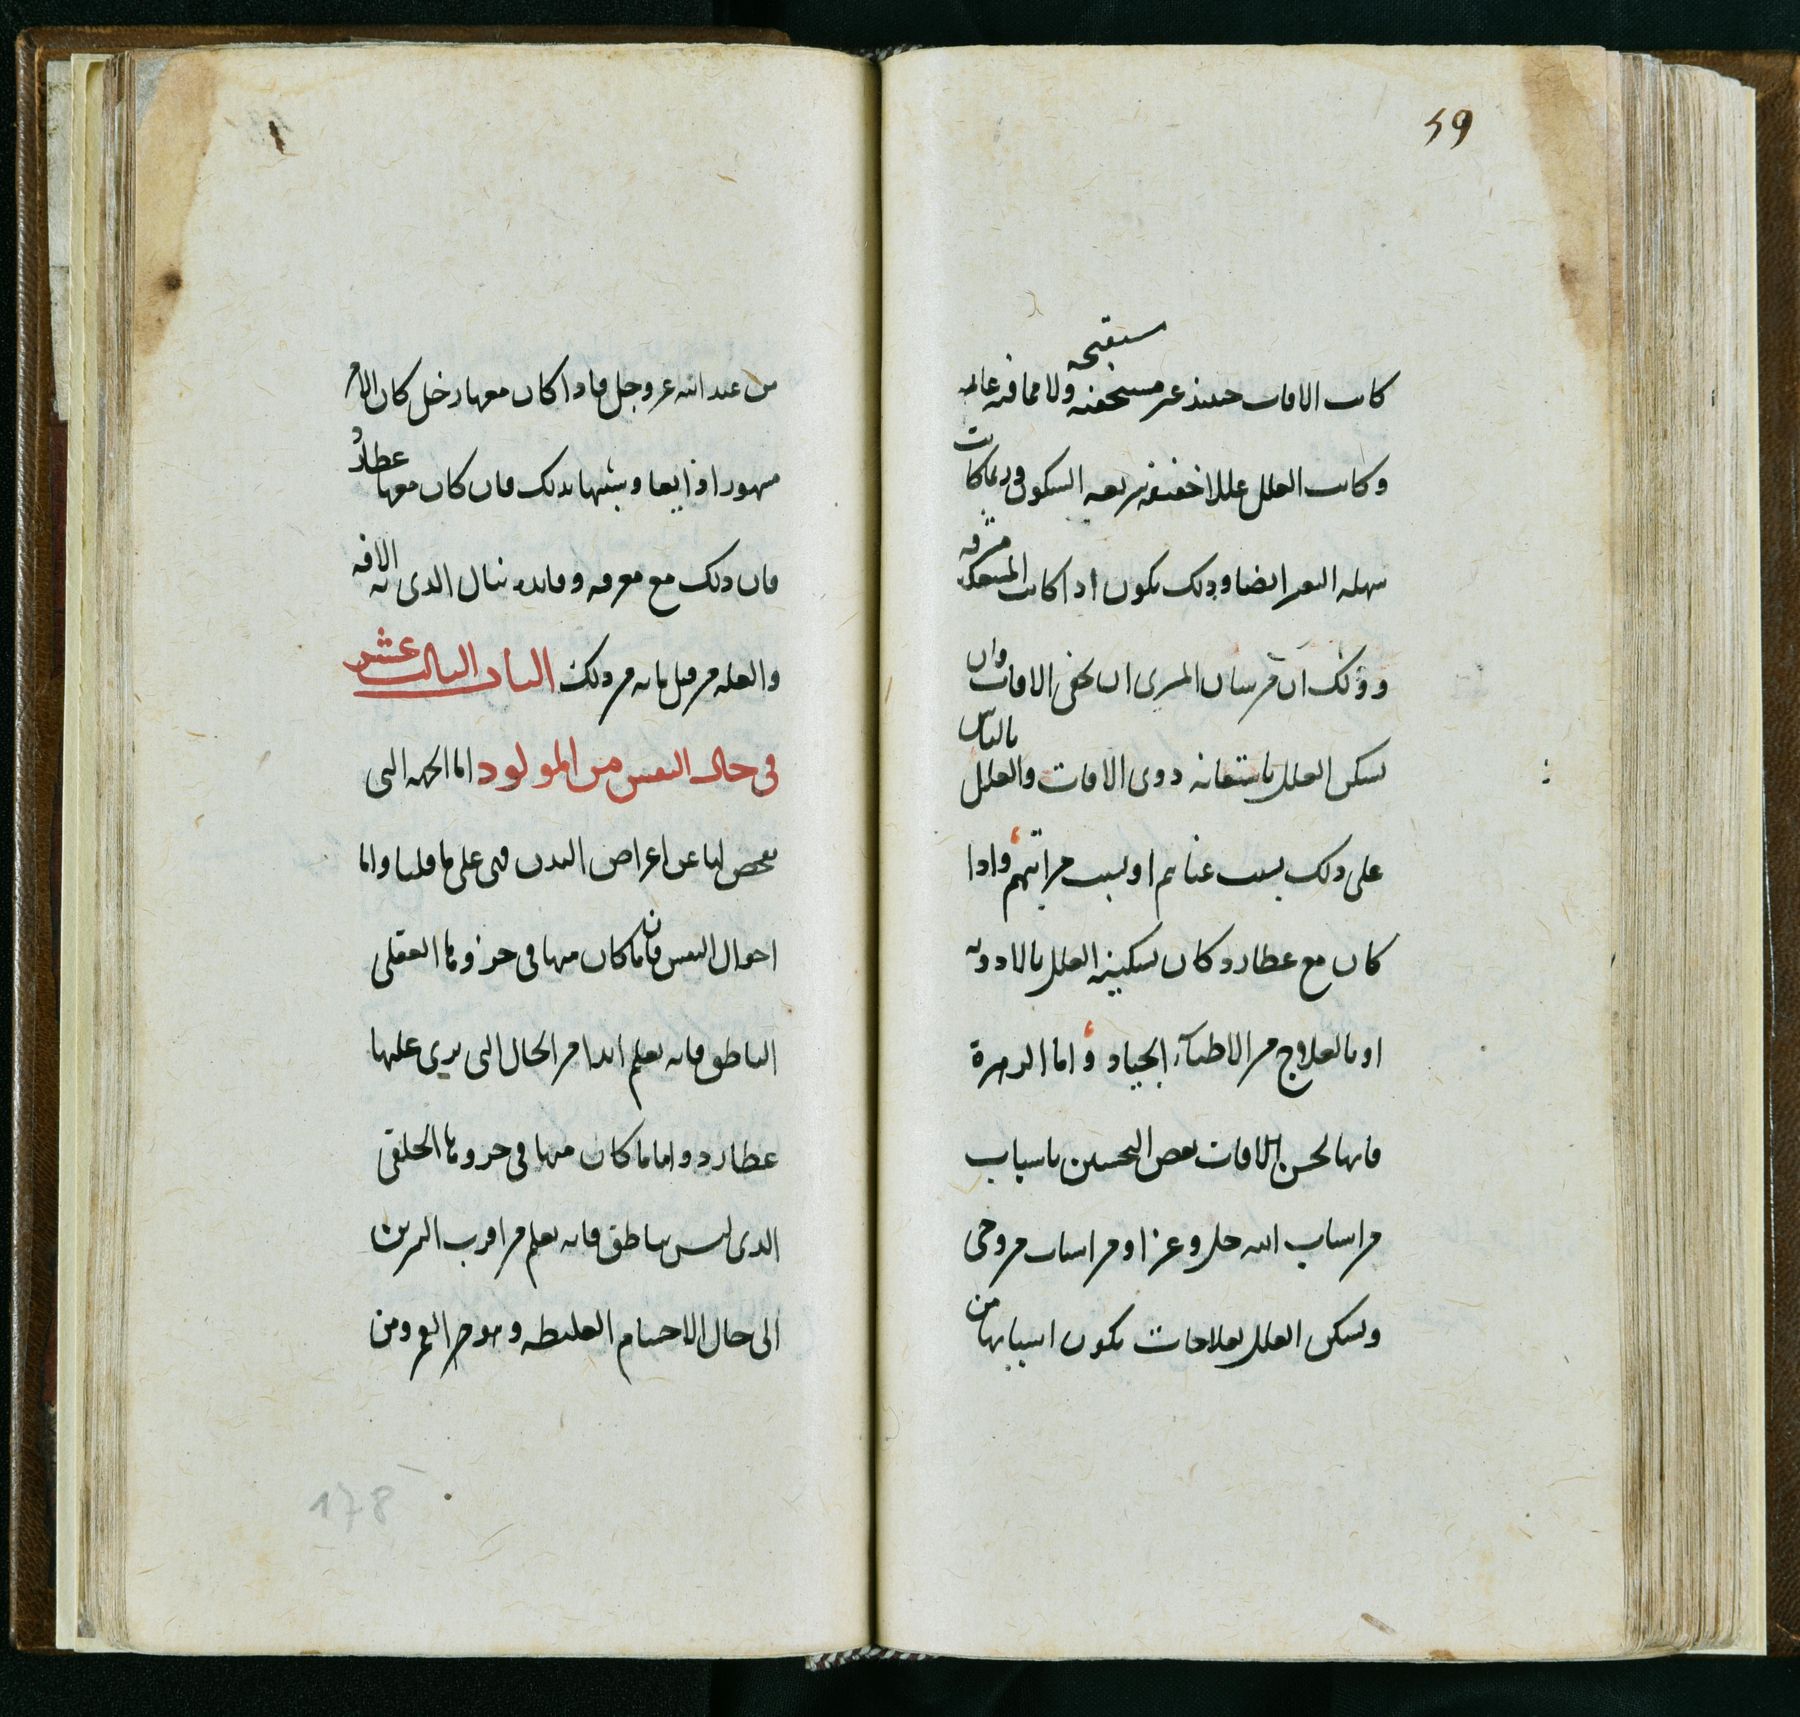 59
مستقبحه
كانت الافات حينئذ غير مستخفيه ولا مما فيه عاله
وكانت العلل عللا خفيفه سريعه السكون وربما كانت
سهله البرء ايضا وذلك يكون اذا كانت المتحيره مشرقه
وذلك ان من شان المشترى ان يخفى الافات وان
يسكن العلل باستعانه ذوى الافات والعلل بالناس
على ذلك بسبب غناهم او بسبب مراتبهم واذا
كان مع عطارد كان تسكينه العلل بالادويه
او بالعلاج من الاطباء الجياد واما الزهرة
فانها تحسن الافات بعض التحسين باسباب
من اسباب الله جل وعز او من اسباب من وحى
وتسكن العلل بعلاجات يكون اسبابها من
من عند الله عز وجل فاذا كان معها زحل كان الامر
مشهورا ذايعا وشبيها بذلك فان كان معها عطارد
فان ذلك مع معرفه وفايده ينال الذى به الافه
والعله من قبل ما به من ذلك الباب الثالث عشر
فى حال النفس من المولود اما الجهه التى
نفحص لها عن اعراض البدن فهى على ما قلنا واما
احوال النفس فان ما كان منها فى جزوها العقلى
الناطق فانه يعلم ابدا من الحال التى يرى عليها
عطارد واما ما كان منها فى جزوها الخلقى
الذى ليس بناطق فانه يعلم من اقرب النيرين
الى حال الاجسام الغليظه وهو القمر ومن
178